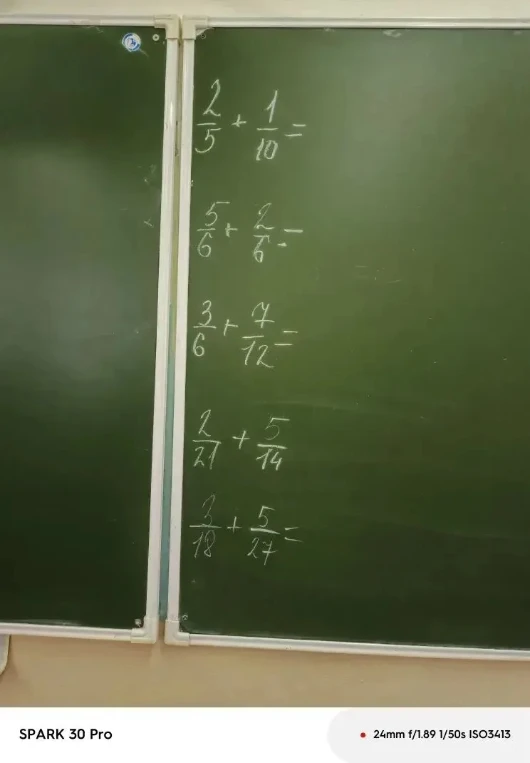 2/5 + 1/10 =
5/6 + 2/6 =
3/6 + 7/12 =
2/21 + 5/14
3/18 + 5/27 =
SPARK 30 Pro
24mm f/1.89 1/50s ISO3413